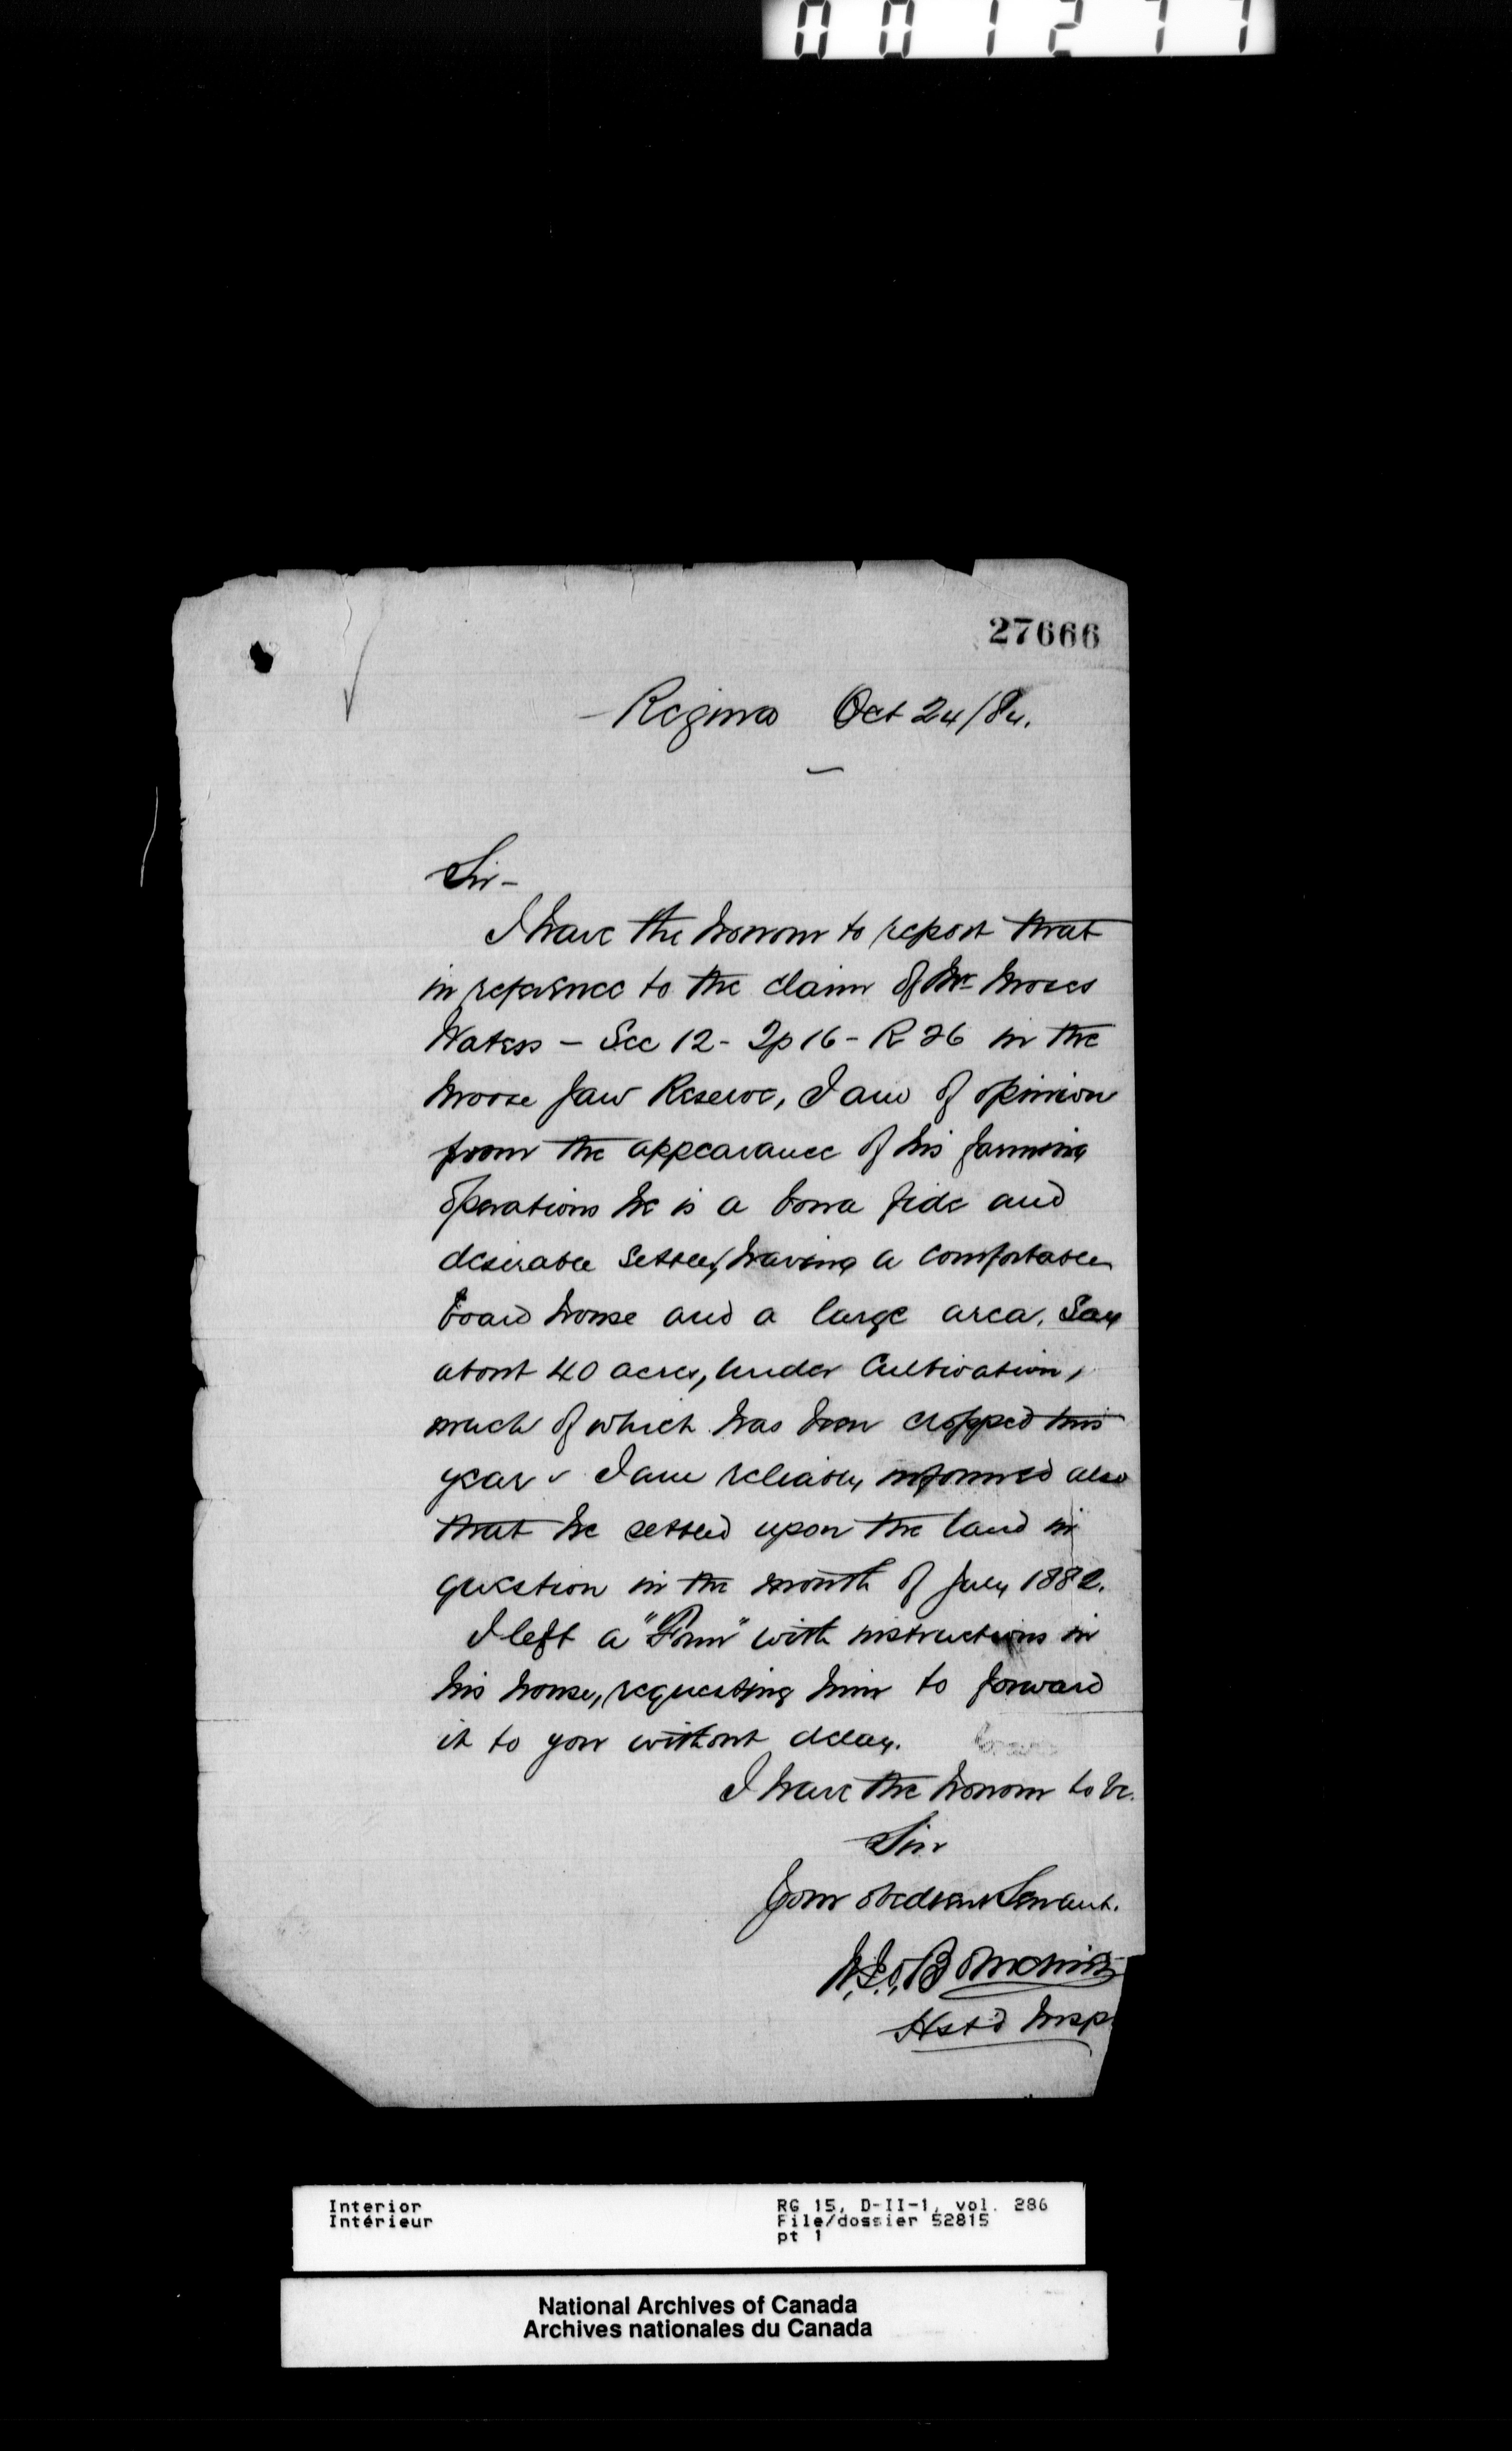 001277
27666
Regina Oct 24/84.
Sir -
I have the honour to report that
in reference to the claim of Mr Moses
Waters - Sec 12 - Tp 16 - R 26 in the
Moose Jaw Reserve, I am of opinion
from the appearance of his farming
operations he is a bona fide and
desirable settler, having a comfortable
board house and a large area, say
about 40 acres, under cultivation,
much of which has been cropped this
year & I am reliably informed also
that he settled upon the land in
question in the month of July 1882.
I left a "Form" with instructions in
his house, requesting him to forward
it to you without delay.
I have the honour to be.
Sir
Your obedient Servant.
Hst'd Insp.
Interior
Intérieur
RG 15, D-II-1, vol. 286
File/dossier 52815
pt 1
National Archives of Canada
Archives nationales du Canada